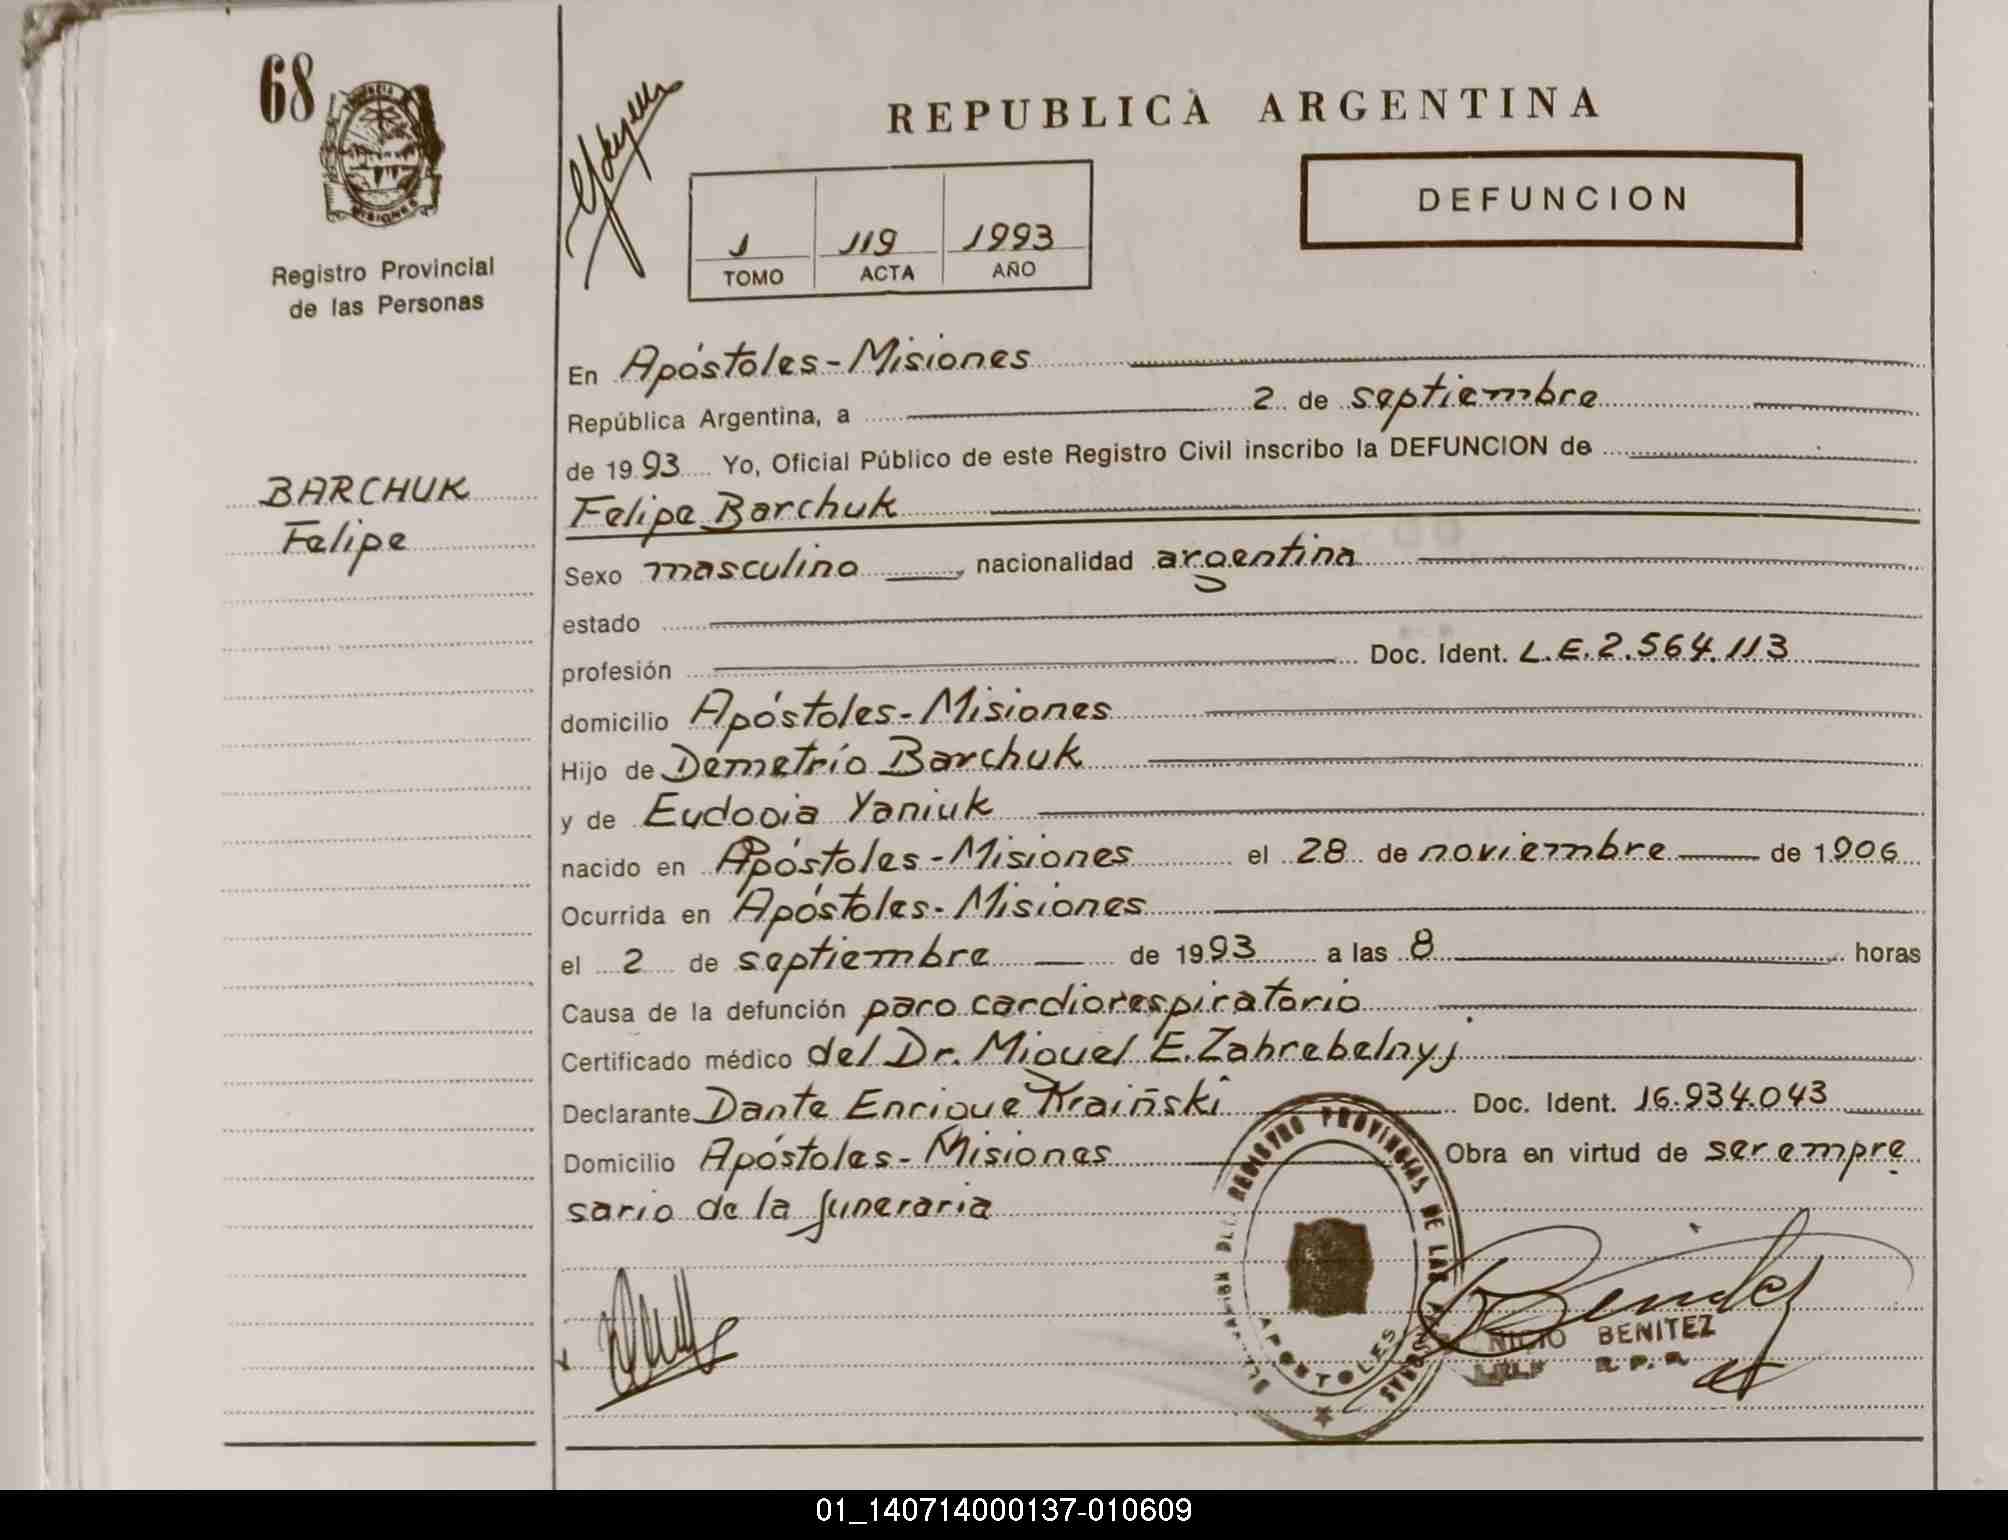 68
PROVINCIA DE
MISIONES
Registro Provincial
de las Personas
BARCHUK
Felipe
REPUBLICA ARGENTINA
DEFUNCION
1 119 1993
TOMO ACTA AÑO
En Apóstoles-Misiones
República Argentina, a 2 de septiembre
de 1993 Yo, Oficial Público de este Registro Civil inscribo la DEFUNCION de
Felipe Barchuk
Sexo masculino, nacionalidad argentina
estado
profesión Doc. Ident. L.E.2.564.113
domicilio Apóstoles-Misiones
Hijo de Demetrio Barchuk
y de Eudogia Yaniuk
nacido en Apóstoles-Misiones el 28 de noviembre de 1906
Ocurrida en Apóstoles-Misiones
el 2 de septiembre de 1993 a las 8 horas
Causa de la defunción paro cardiorespiratorio
Certificado médico del Dr. Miguel E. Zahrebelnyj
Declarante Dante Enrique Kraiñski Doc. Ident. 16.934.043
Domicilio Apóstoles-Misiones Obra en virtud de ser empre
sario de la funeraria
REGISTRO PROVINCIAL DE LAS PERSONAS
APOSTOLES
BENITEZ
R.P.P.
01_140714000137-010609